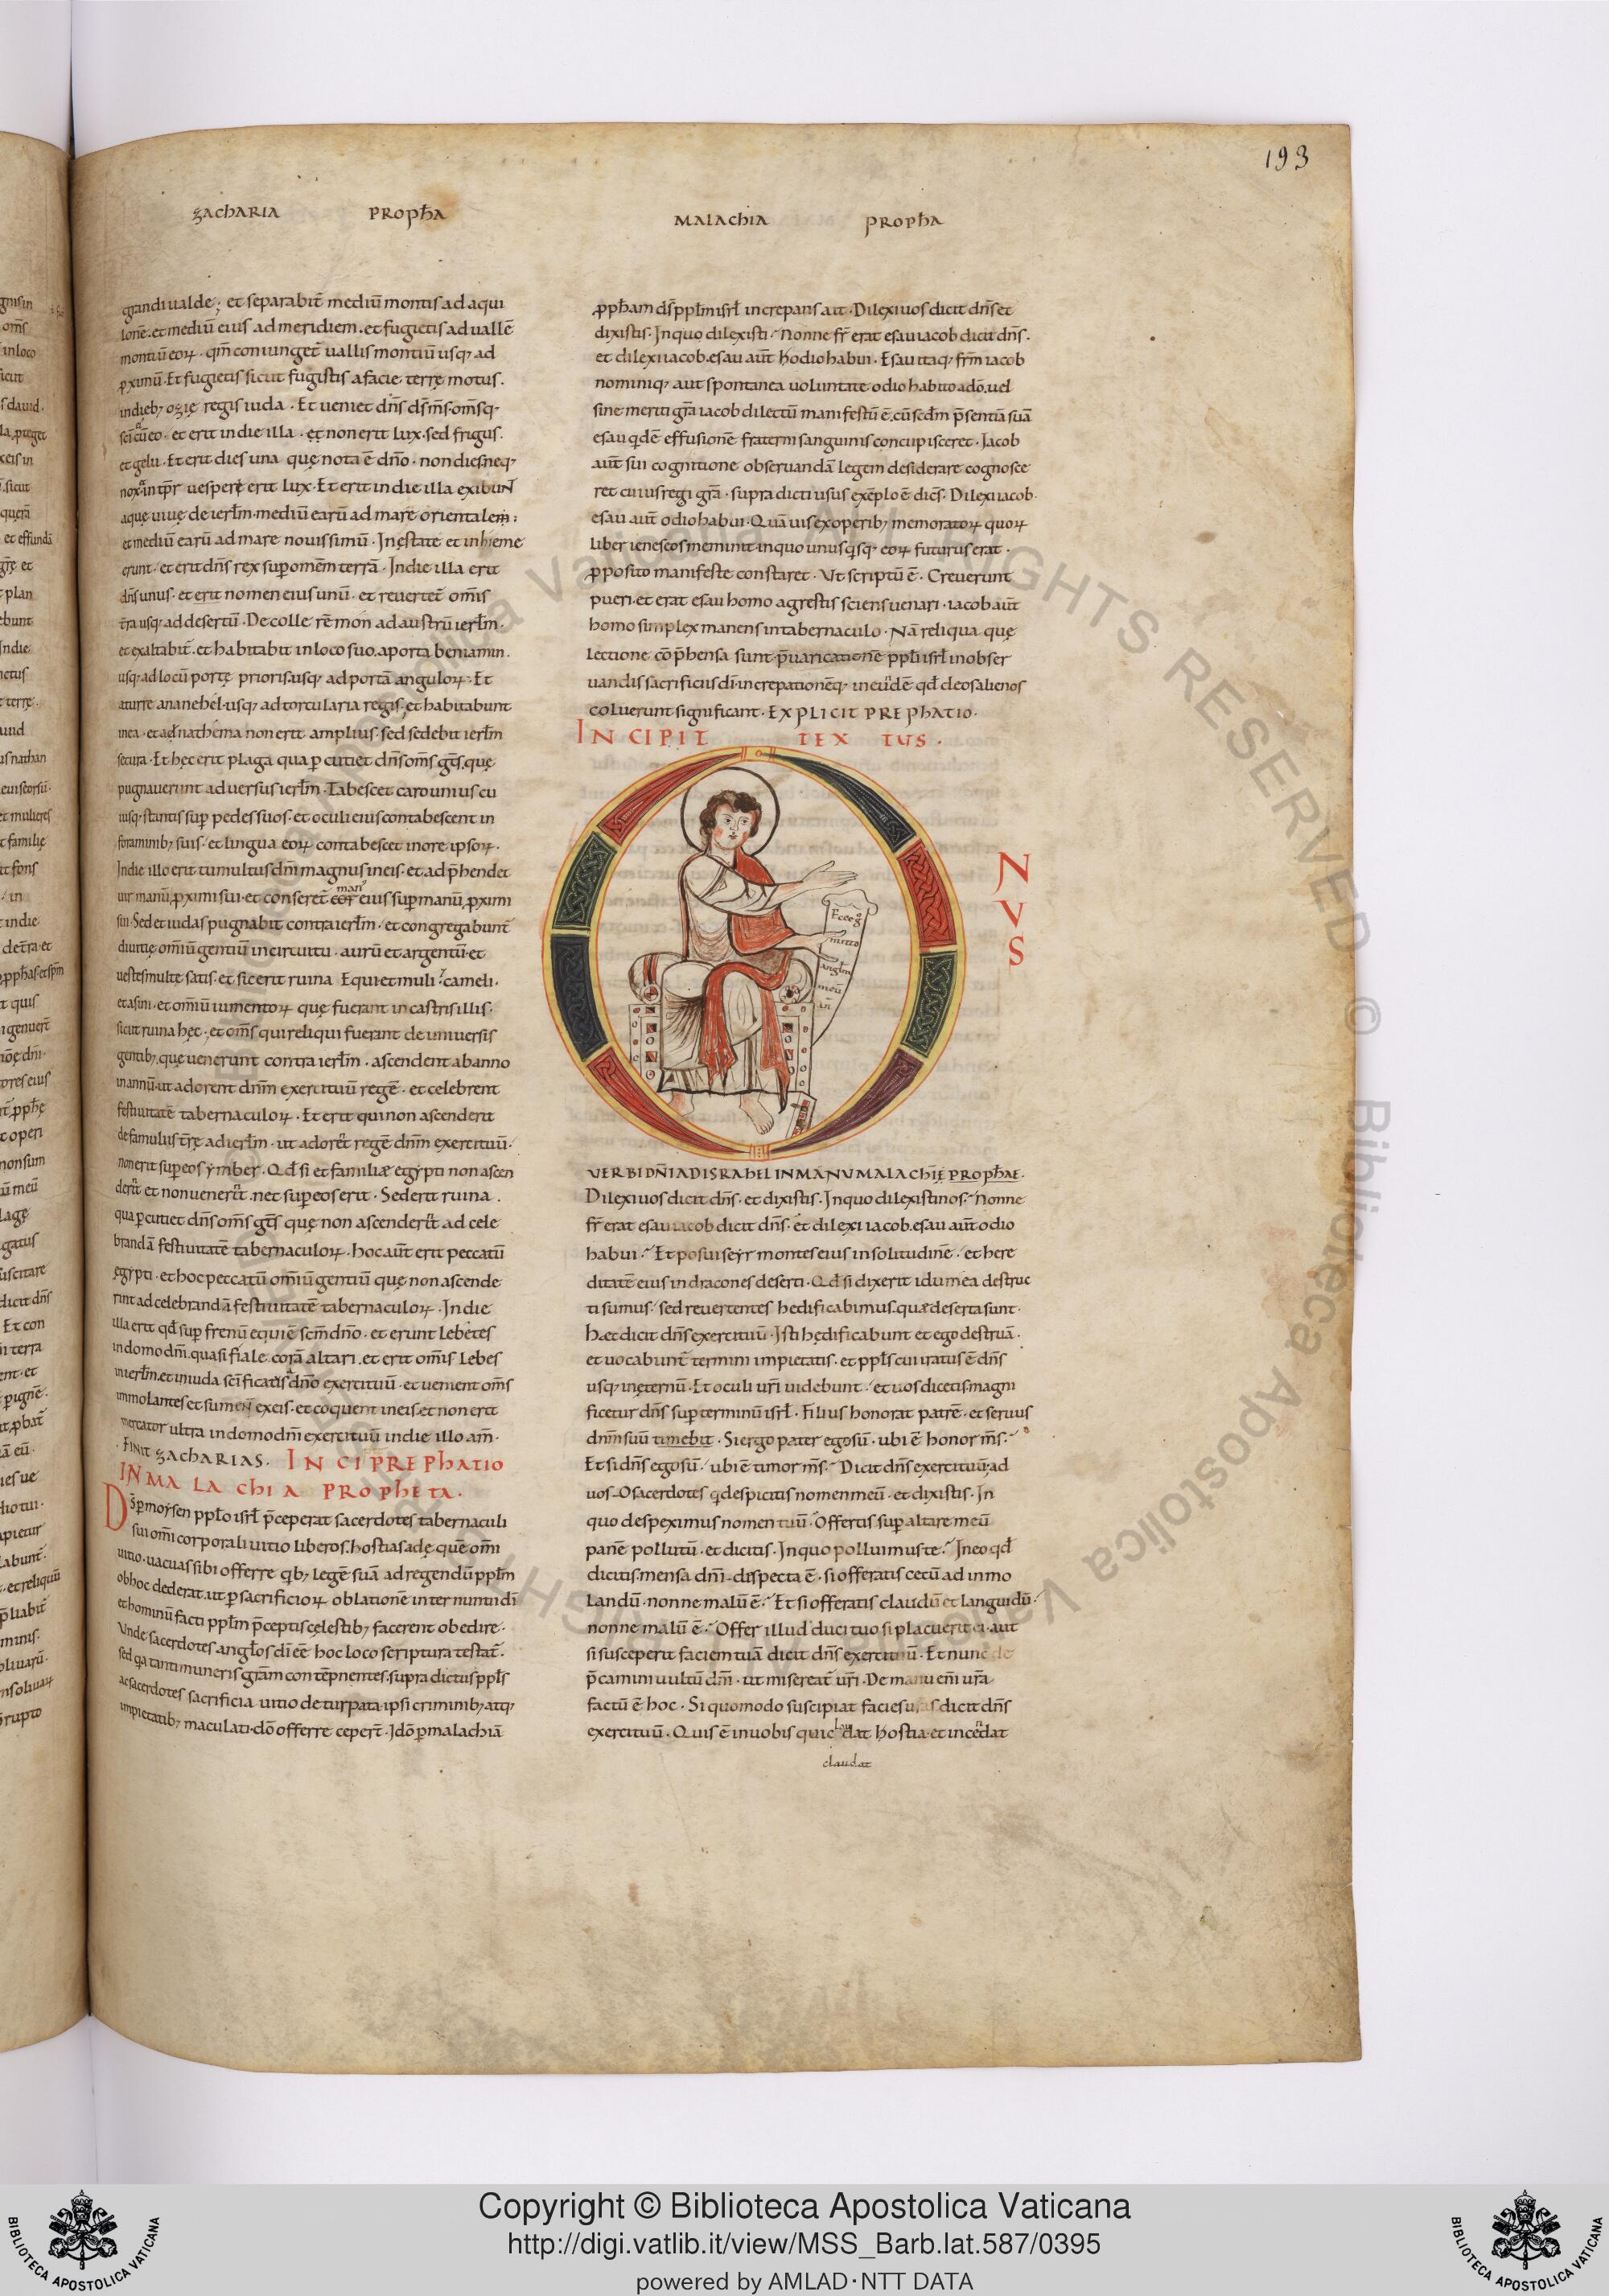 193
zachARIA PROPħA
MALAChIA PROPhA
grandi ualde; et separabit̄ mediū montis ad aqui
lonē. et mediū eius ad meridiem. et fugietis ad uallē
montiū eoꝝ. qm̄ coniunget̄ uallis montiū usq; ad
ꝓximū. Et fugietis sicut fugistis a facie terrę motus.
in dieb; ozię regis iuda. Et ueniet dn̄s ds̄ ms̄. om̄sq;
sc̄i cū eo. et erit in die illa. et non erit lux. sed frigus.
et gelu. Et erit dies una quę nota ē dn̄o. non dies neq;
nox. in tp̄r uesperę erit lux. Et erit in die illa exibunt
aquę uiuę de ierlm̄. mediū earū ad mare orientalem:
et mediū earū ad mare nouissimū. In ęstate et in hieme
erunt. et erit dn̄s rex sup omēm terrā. In die illa erit
dn̄s unus. et erit nomen eius unū. et reuertet̄ omīs
t̄ra usq; ad desertū. De colle remmon ad austrū ierlm̄.
et exaltabit̄. et habitabit in loco suo. a porta beniamin.
usq; ad locū portę prioris. usq; ad portā anguloꝝ. Et
a turre ananehel. usq; ad torcularia regis. et habitabunt
in ea. et anathema non erit amplius. sed sedebit ierlm̄
secura. Et hęc erit plaga qua ꝑcutiet dn̄s om̄s gt̄s. quę
pugnauerunt aduersus ierlm̄. Tabescet caro unius cu
iusq; stantis sup pedes suos. et oculi eius contabescent in
foraminib; suis. et lingua eoꝝ contabescet in ore ipsoꝝ.
In die illo erit tumultus dn̄i magnus in eis. et adp̄hendet
uir manū ꝓximi sui. et conseret̄ man; eius sup manū ꝓximi
sui. Sed et iudas pugnabit contra ierlm̄. et congregabunt̄
diuitię omīū gentiū in circuitu. aurū et argentū. et
uestes multę satis. et sic erit ruina Equi et muli. cameli.
et asini. et omīū iumentoꝝ quę fuerant in castris illis.
sicut ruina hęc. et om̄s qui reliqui fuerant de uniuersis
gentib; quę uenerunt contra ierlm̄. ascendent ab anno
in annū. ut adorent dn̄m exercituū regē. et celebrent
festiuitatē tabernaculoꝝ. Et erit qui non ascenderit
de famulus t̄rę ad ierlm̄. ut adoret regē dn̄m exercituū.
non erit sup eos ymber. Qđ si et familiæ egypti non ascen
derit et non uenerit. nec sup eos erit. Sed erit ruina.
qua ꝑcutiet dn̄s om̄s gt̄s quę non ascenderit ad cele
brandā festiuitatē tabernaculoꝝ. hoc aūt erit peccatū
ęgypti. et hoc peccatū omīū gentiū quę non ascende
rint ad celebrandā festiuitatē tabernaculoꝝ. In die
illa erit qđ sup frenū equi ē scm̄ dn̄o. et erunt lebetes
in domo dn̄i. quasi fiale corā altari. et erit omīs lebes
in ierlm̄. et in iuda sc̄ificatus dn̄o exercituū. et uenient om̄s
immolantes et sument ex eis. et coquent in eis. et non erit
mercator ultra in domo dn̄i exercituū in die illo am̄.
FINIT zAChARIAS. IN CI PRE PhATIO
IN MA LA Chi A PROPhETA.
Ds̄ p moysen pplo isrł p̄ceperat sacerdotes tabernaculi
sui omī corporali uitio liberos. hostias adęque omī
uitio uacuas sibi offerre qb; legē suā ad regendū pplm̄
ob hoc dederat. ut ꝑ sacrificioꝝ oblationē inter nuntii di
et hominū facti pplm̄ p̄ceptis cęlestib; facerent obedire.
Vnde sacerdotes angłos di eē hoc loco scriptura testat̄.
sed qa tanti muneris gram contēpnentes. supra dictus ppls
ac sacerdotes sacrificia uitio deturpata. ipsi criminib; atq;
impietatib; maculati. dō offerre ceper̄t. Idō ꝑ malachiā
ꝓpham ds̄ pplm isrł increpans ait. Dilexi uos dicit dn̄s et
dixistis. In quo dilexisti. Nonne fr̄ erat esau iacob dicit dn̄s.
et dilexi iacob. esau aūt hodio habui. Esau itaq; frm̄ iacob
nominiq; aut spontanea uoluntate odio habito a dō. uel
sine meriti gr̄a iacob dilectū manifestū ē. cū scdm̄ p̄sentiā suā
esau qdē effusionē fraterni sanguinis concupisceret. Iacob
aūt sui cognitione obseruandā legem desiderare cognosce
ret cuius regi gr̄a. supra dicti usus exēplo ē dicēs. Dilexi iacob.
esau aūt odio habui. Quā uis ex operib; memoratoꝝ quoꝝ
liber ieneseos meminit in quo unusqsq; eoꝝ futurus erat.
ꝓposito manifeste constaret. Vt scriptū ē. Creuerunt
pueri. et erat esau homo agrestis sciens uenari. iacob aūt
homo simplex manens in tabernaculo. Nā reliqua quę
lectione cōp̄hensa sunt. p̄uaricationē ppli isrł in obser
uandis sacrificiis di. increpationēq; in eūdē qđ deos alienos
coluerunt significant. EXPLICIT PREPhATIO.
IN CIPIT TEX TUS.
O
N
V
S
Ecce g̊
mitto
anglm̄
meū
in
VERBI DN̄I AD ISRAHEL IN MANV MALAChIĘ PROPhAE.
Dilexi uos dicit dn̄s. et dixistis. In quo dilexisti nos. Nonne
fr̄ erat esau iacob dicit dn̄s. et dilexi iacob. esau aūt odio
habui. Et posui seyr montes eius in solitudinē. et here
ditatē eius in dracones deserti. Qđ si dixerit idumea destruc
ti sumus. sed reuertentes hedificabimus. quæ deserta sunt.
Hæc dicit dn̄s exercituū. Isti hędificabunt et ego destruā.
et uocabunt̄ termini impietatis. et ppls cui iratus ē dn̄s
usq; in ęternū. Et oculi ur̄i uidebunt. et uos dicetis. magni
ficetur dn̄s sup terminū isrł. Filius honorat patrē. et seruus
dnm̄ suū timebit. Si ergo pater ego sū. ubi ē honor ms̄.
Et si dn̄s ego sū. ubi ē timor ms̄. Dicit dn̄s exercituū. ad
uos. O sacerdotes q despicitis nomen meū. et dixistis. In
quo despeximus nomen tuū. Offertis sup altare meū
panē pollutū. et dicitis. In quo polluimus te. In eo qđ
dicitis. mensa dn̄i dispecta ē. si offeratis cecū ad inmo
landū. nonne malū ē. Et si offeratis claudū et languidū.
nonne malū ē. Offer illud duci tuo si placuerit ei. aut
si susceperit faciem tuā dicit dn̄s exercituū. Et nunc de
p̄camini uultū dn̄i. ut misereat̄ ur̄i. De manu enī ur̄a
factū ē hoc. Si quomodo suscipiat facies uras dicit dn̄s
exercituū. Quis ē in uobis qui cludat hostia. et incēdat
claudat
Copyright © Biblioteca Apostolica Vaticana
http://digi.vatlib.it/view/MSS_Barb.lat.587/0395
powered by AMLAD·NTT DATA
BIBLIOTECA APOSTOLICA VATICANA
BIBLIOTECA APOSTOLICA VATICANA